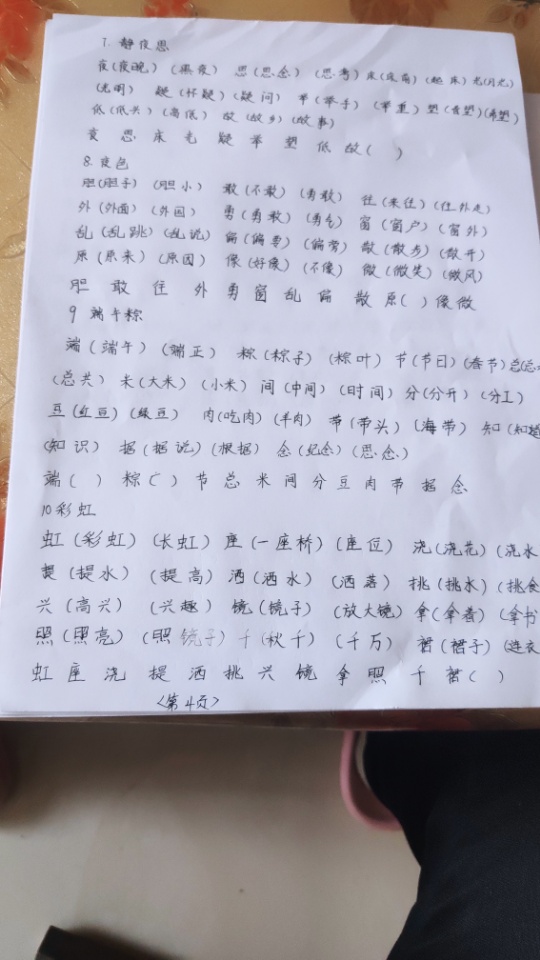 7. 静夜思
夜(夜晚) (黑夜) 思(思念) (思考) 床(床前) (起床) 光(月光)
(光明) 疑(怀疑) (疑问) 举(举手) (举重) 望(看望)(希望)
低(低头) (高低) 故(故乡) (故事)
夜 思 床 光 疑 举 望 低 故( )
8. 夜色
胆(胆子) (胆小) 敢(不敢) (勇敢) 往(来往) (往外走)
外(外面) (外国) 勇(勇敢) (勇气) 窗(窗户) (窗外)
乱(乱跳) (乱说) 偏(偏要) (偏旁) 散(散步) (散开)
原(原来) (原因) 像(好像) (不像) 微(微笑) (微风)
胆 敢 往 外 勇 窗 乱 偏 散 原( ) 像 微
9 端午粽
端(端午) (端正) 粽(粽子) (粽叶) 节(节日)(春节)总
(总共) 米(大米) (小米) 间(中间) (时间) 分(分开) (分工)
豆(红豆) (绿豆) 肉(吃肉) (羊肉) 带(带头) (海带) 知
(知识) 据(据说) (根据) 念(纪念) (思念)
端( ) 粽( ) 节 总 米 间 分 豆 肉 带 据 念
10彩虹
虹(彩虹) (长虹) 座(一座桥) (座位) 浇(浇花) (浇水
提(提水) (提高) 洒(洒水) (洒落) 挑(挑水) (挑食
兴(高兴) (兴趣) 镜(镜子) (放大镜) 拿(拿着) (拿书
照(照亮) (照镜子) 千(秋千) (千万) 裙(裙子) (连衣
虹 座 浇 提 洒 挑 兴 镜 拿 照 千 裙( )
<第4页>